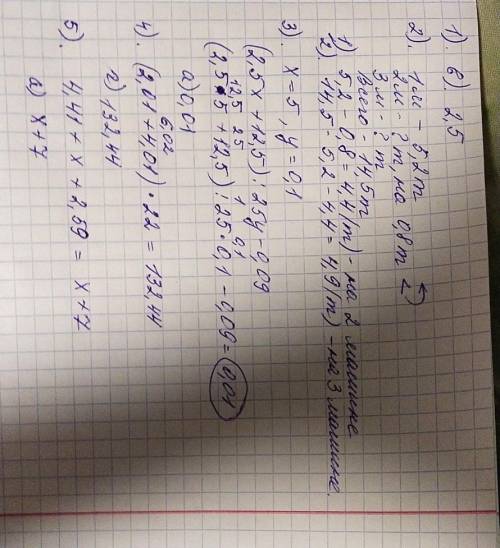 1). в) 2,5
2). 1м – 5,2т
2м – ? т, на 0,8т <
3м – ? т
Всего 14,5т
1) 5,2 – 0,8 = 4,4(т) – на 2 машине
2) 14,5 – 5,2 – 4,4 = 4,9(т) – на 3 машине.
3). x = 5, y = 0,1
(2,5x + 12,5) : 25y – 0,09
12,5 25 1 0,1
(2,5·5 + 12,5) : 25·0,1 – 0,09 = 0,01
а) 0,01
6,02
4). (2,01 + 4,01) · 22 = 132,44
г) 132,44
5). 4,41 + x + 2,59 = x + 7
а) x + 7